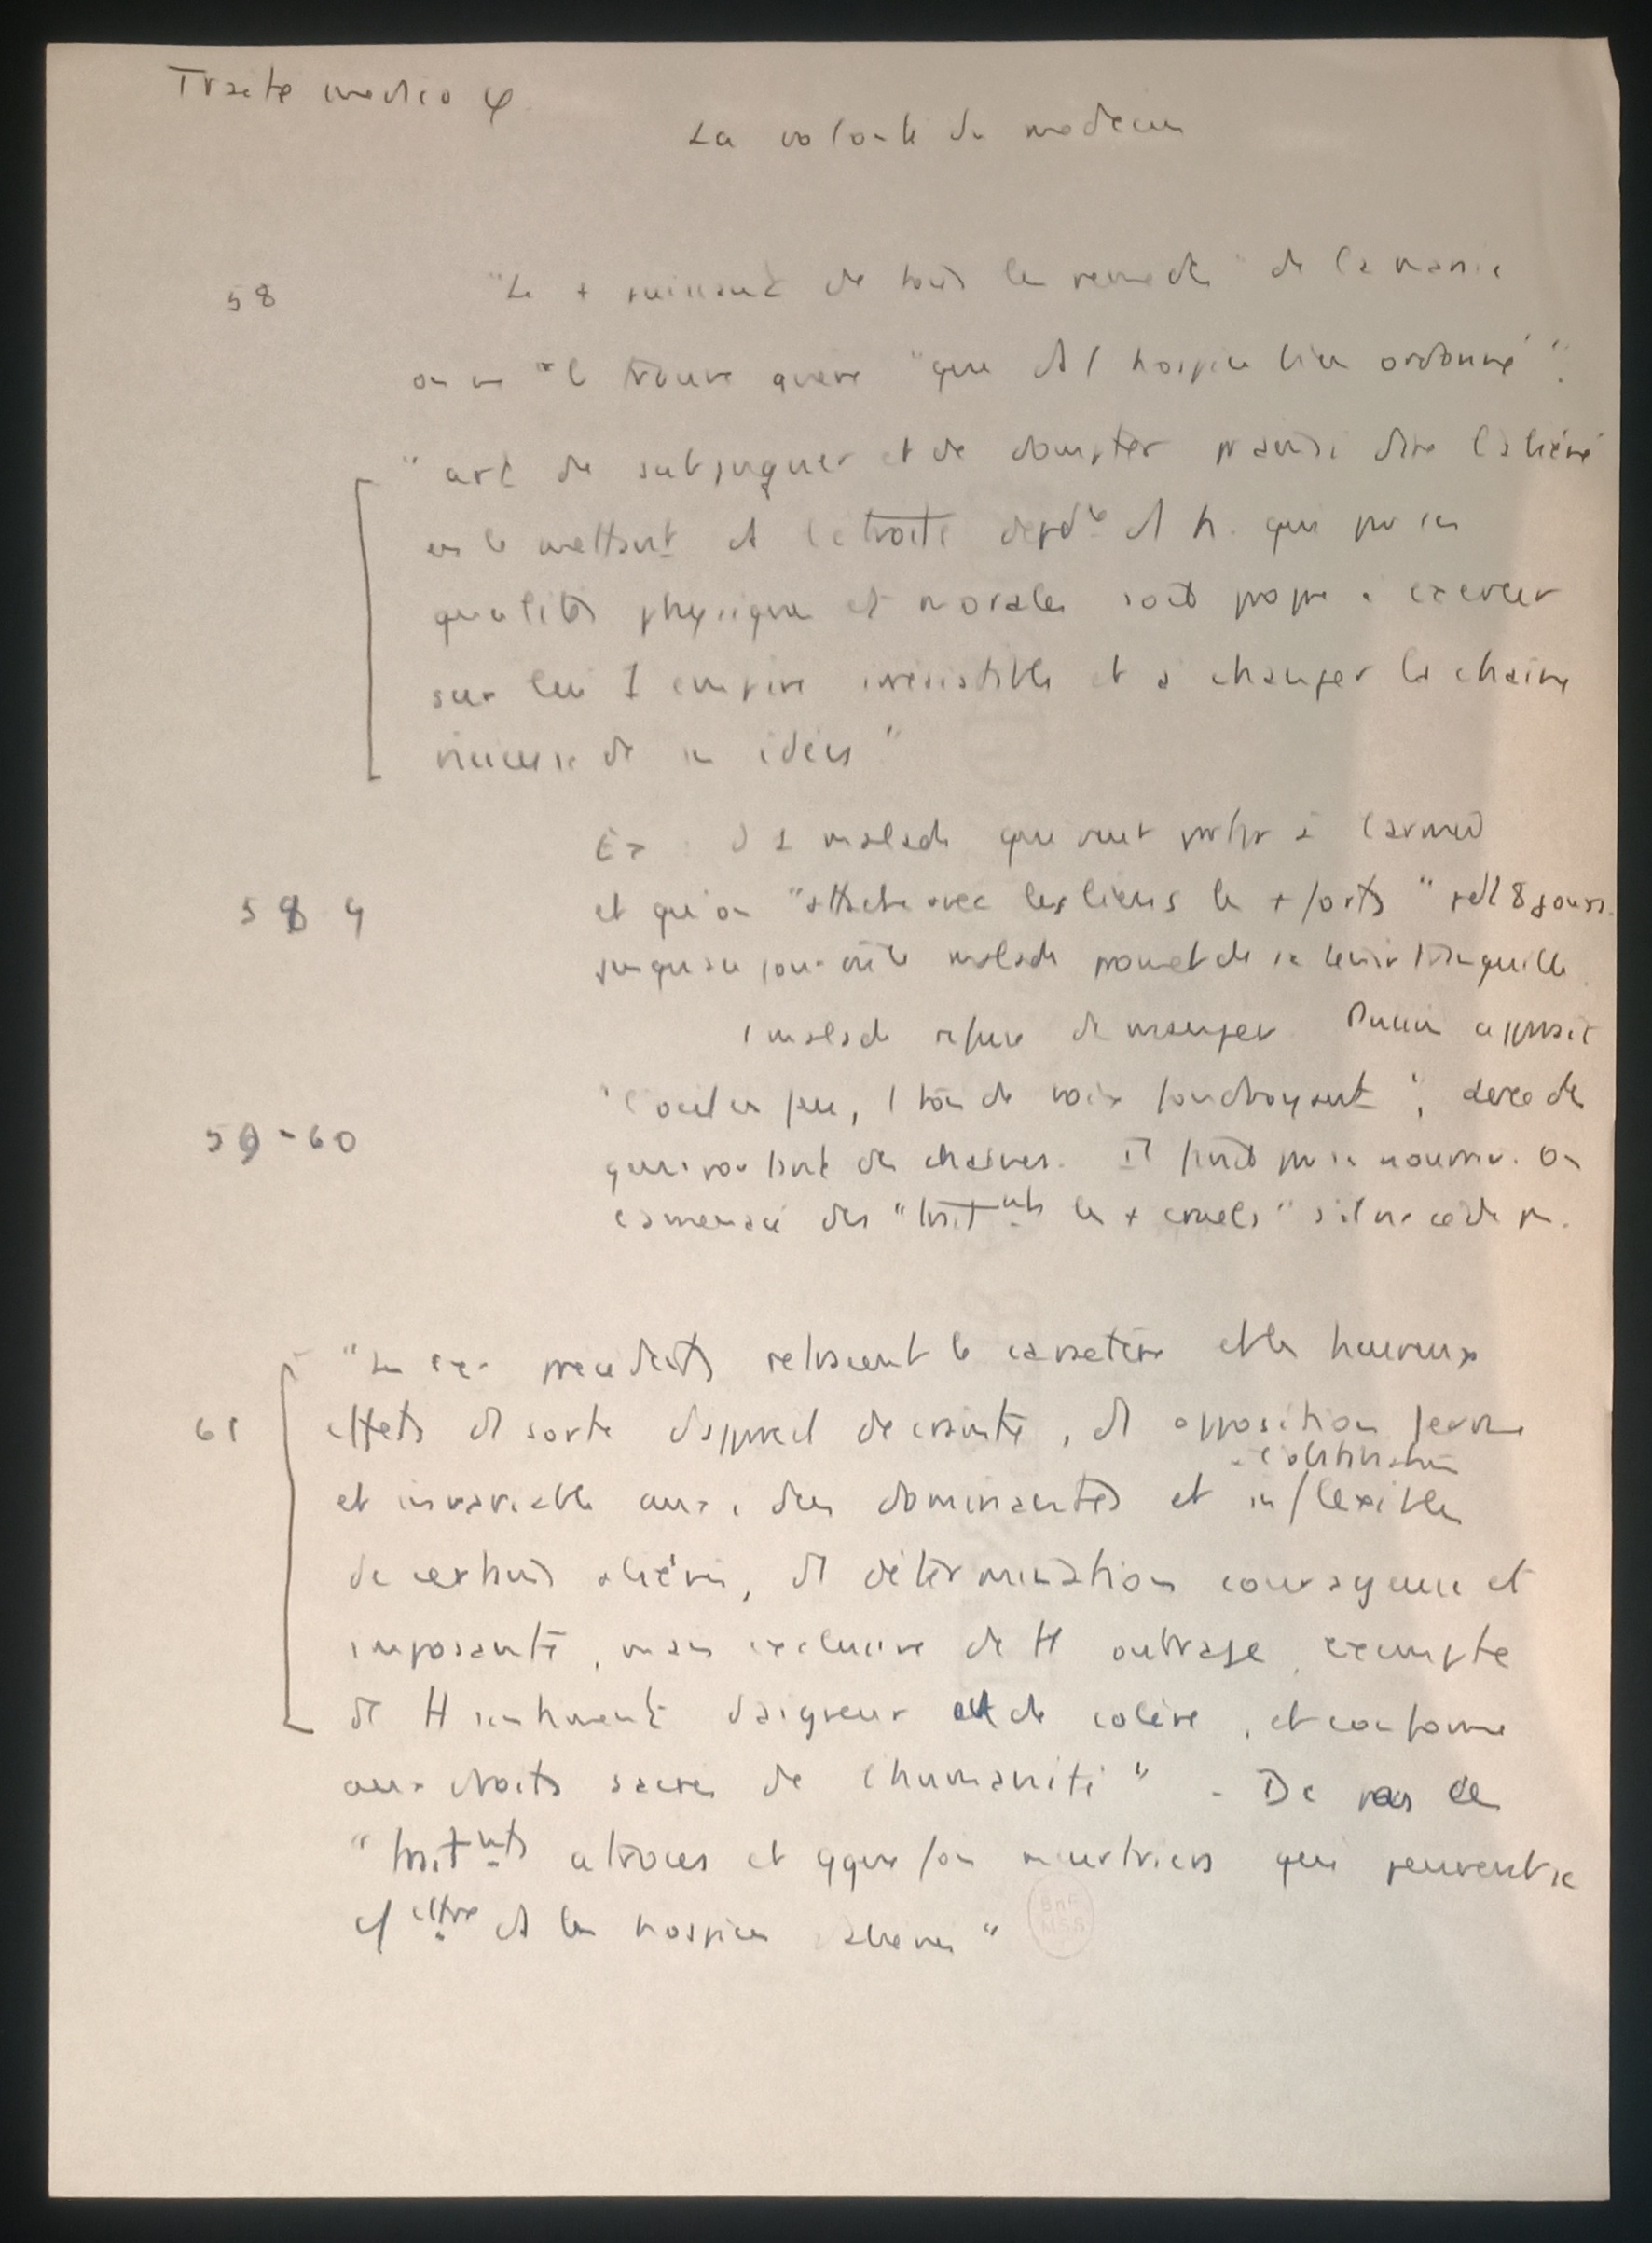 Traité medico φ
La volonté du medecin
58 "Le + puissant de tous les remedes" de la manie
on ne "le trouve guere "que ds 1 hospice bien ordonné".
"art de subjuguer et de dompter pr ainsi dire l'aliéné
en le mettant ds l'etroite depdce d'1 h. qui par ses
qualités physiques et morales soit propre à exercer
sur lui 1 empire irresistible et à changer la chaine
vicieuse de ses idées"
Ex : d'1 malade qui veut partir à l'armée
58 9 et qu'on "attache avec les liens les + forts" pdt 8 jours.
jusqu'au jour où le malade promet de se tenir tranquille.
1 malade refuse de manger. Pussin apparait
59-60 "l'oeil en feu, 1 ton de voix foudroyant", avec des
gens portant des chaines. Il finit par se nourrir. On
l'a menacé des "traitmts les + cruels" s'il ne cède pas.
"Les ex. precedents retracent le caractère et les heureux
61 effets d'1 sorte d'appareil de crainte, d'1 opposition ferme
et invariable aux idées dominantes et à l'obstination inflexible
de certains aliénés, d'1 détermination courageuse et
imposante, mais exclusive de tt outrage, exempte
de tt sentiment d'aigreur et de colère, et conforme
aux droits sacrés de l'humanité" - De pas les
"traitmts atroces et qque fois meurtriers qui peuvent se
cf ettre ds les hospices aliénés"
BnF
MSS